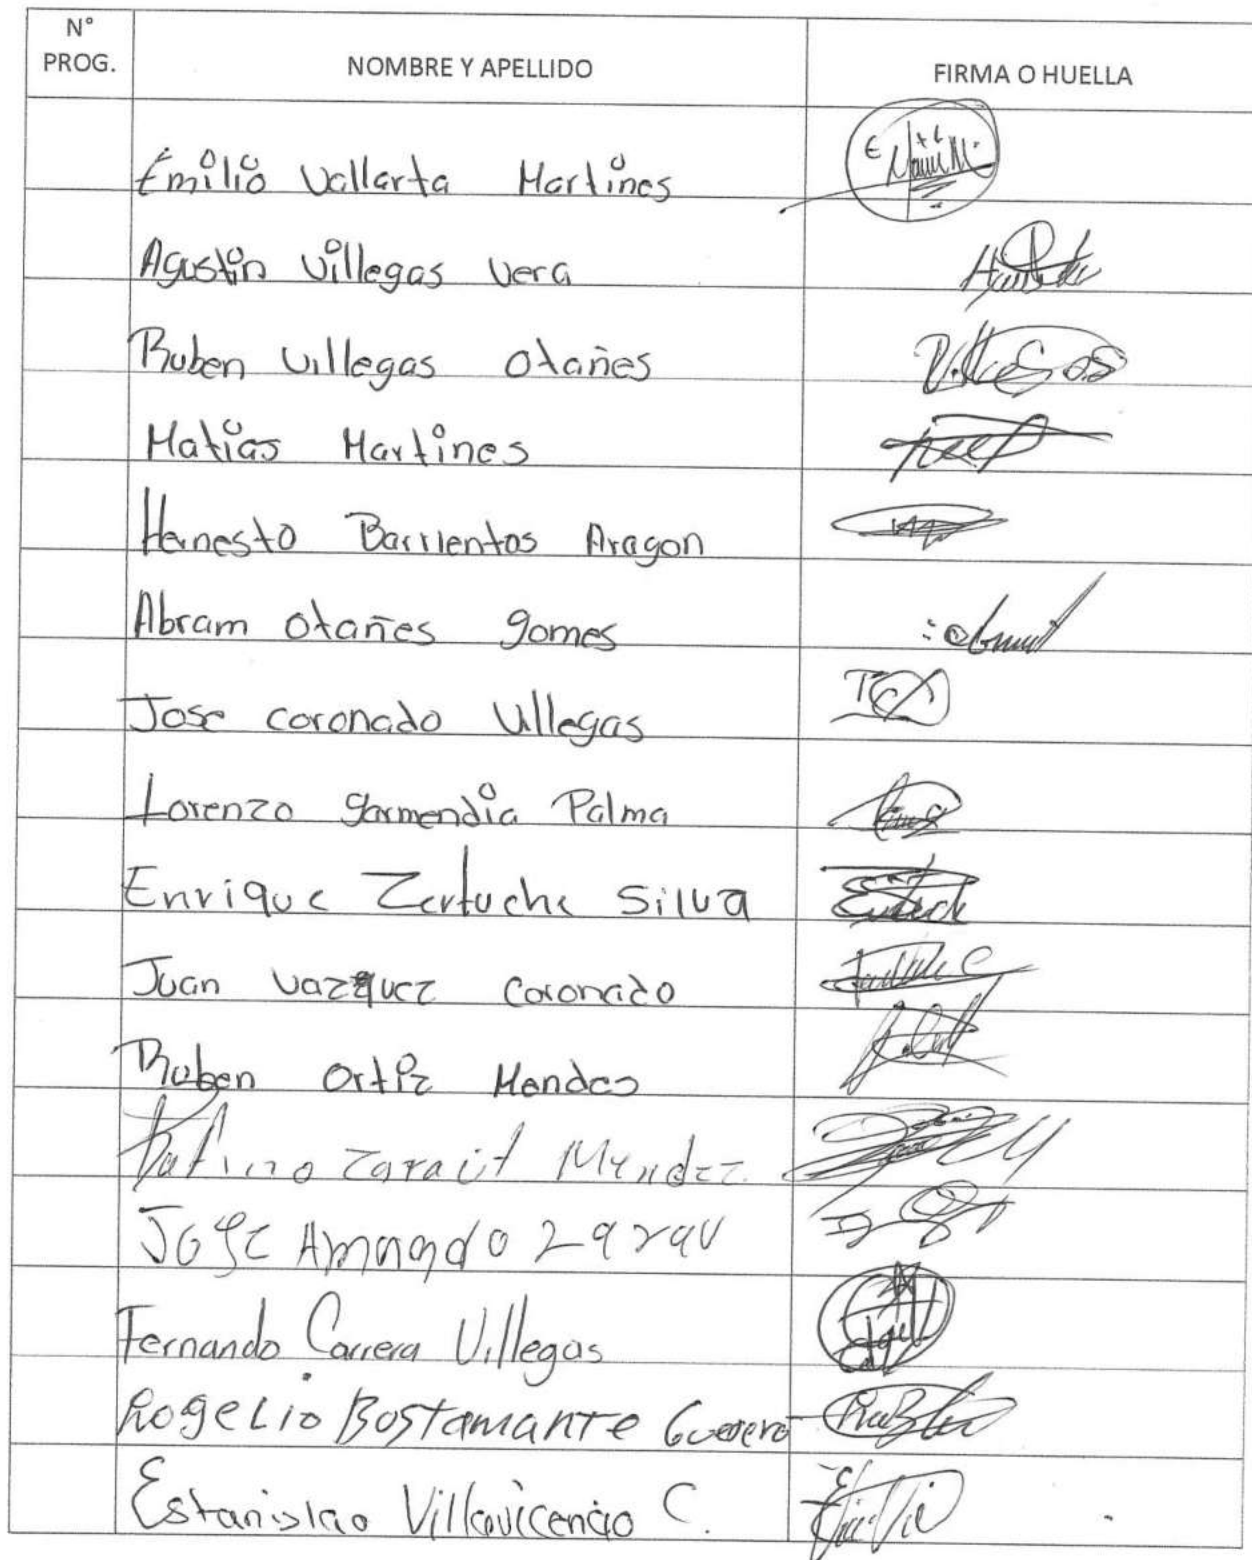 N° PROG. NOMBRE Y APELLIDO FIRMA O HUELLA
Emilio Vallarta Martines
Agustin Villegas Vera
Ruben Villegas Otañes
Matias Martines
Hernesto Barrientos Aragon
Abram Otañes gomes
Jose coronado Villegas
Lorenzo garmendia Palma
Enrique Zertuche Silva
Juan Vazquez Coronado
Ruben Ortiz Mendes
Zarait Myndez
José Amando
Fernando Carrera Villegas
Rogelio Bostamante
Estanislao Villavicencio C.